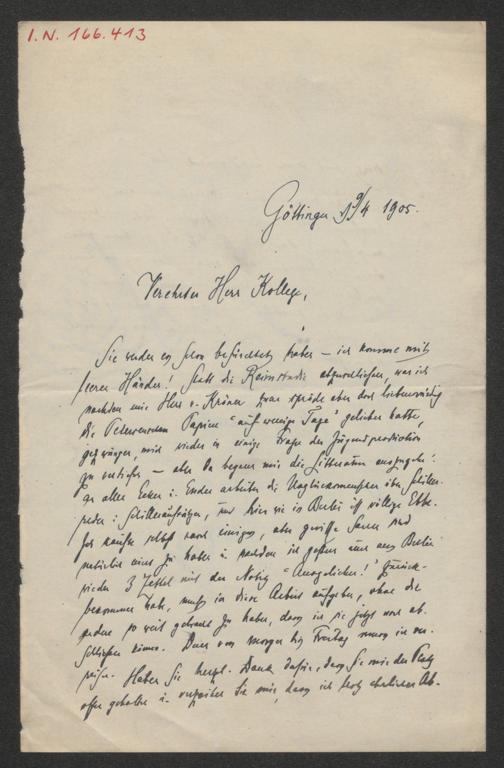 I.N. 166.413
Göttingen 9/4 1905.
Verehrter Herr Kollege,
Sie werden es schon befürchtet haben – ich komme mit
leeren Händen! Statt die Reimstudie abzuschliessen, war ich
nachdem mir Herr v. Kröner zwar spröde aber doch liebenswürdig
die Petersenschen Papiere "auf wenige Tage" geliehen hatte,
gezwungen, mich wieder in einige Fragen der Jugendproduction
zu vertiefen – aber da begann mir die Litteratur auszugehen:
an allen Ecken u. Enden arbeiten die Unglücksmenschen über Schiller-
reden u. Schilleraufsätzen, nur hier wie in Berlin ist völlige Ebbe.
Ich kaufte selbst noch einiges, aber gewisse Sachen sind
natürlich nicht zu haben u. nachdem ich gestern nun aus Berlin
wieder 3 Zettel mit der Notiz "Ausgeliehen!" zurück-
bekommen habe, muss ich diese Arbeit aufgeben, ohne die
andere so weit gebracht zu haben, dass ich sie jetzt noch ab-
schliessen könnte. Denn von morgen bis Freitag muss ich ver-
reisen. Haben Sie herzl. Dank dafür, dass Sie mir den Platz
offen gehalten u. verzeihen Sie mir, dass ich trotz ehrlicher Ab-